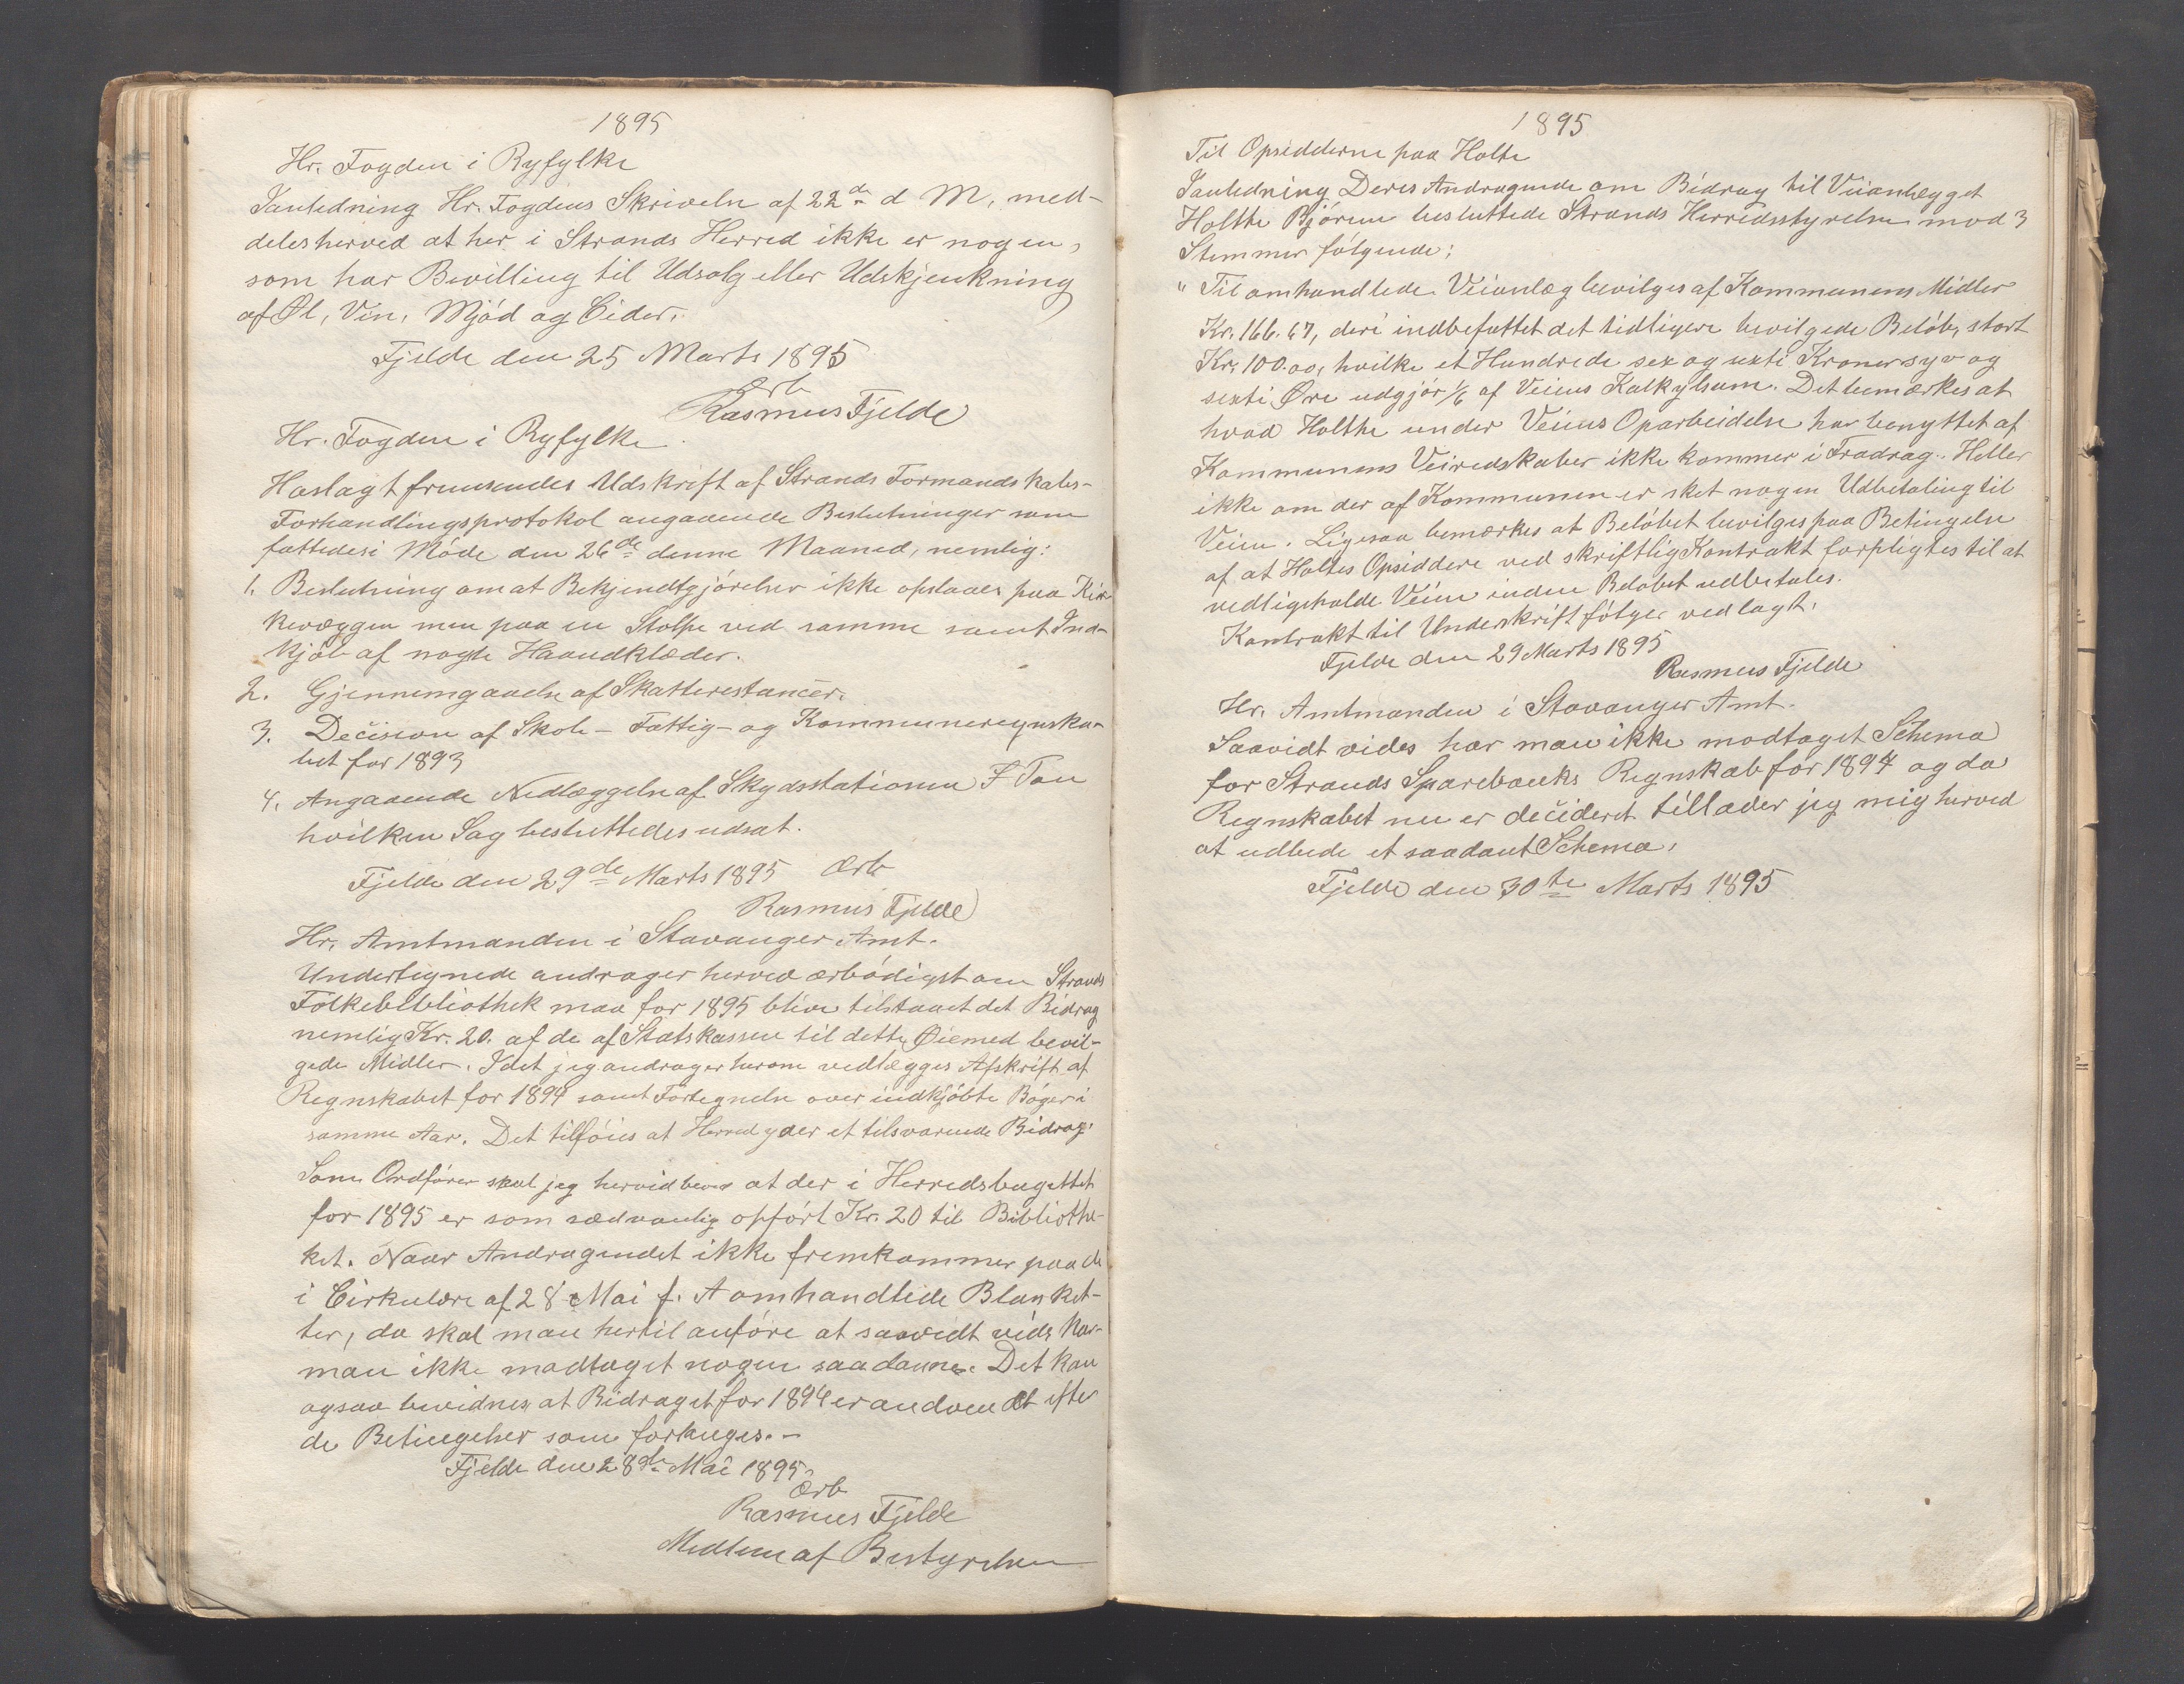 1895
Hr. Fogden i Ryfylke
Ianledning Hr. Fogdens Skrivelse af 22de d M, med-
deles herved at her i Strands Herred ikke er nogen,
som har Bevilling til Udsalg eller Udskjenkning
af Øl, Vin, Mjód og Cider.
Fjelde den 25 Marts 1895
Ærb
Rasmus Fjelde
Hr. Fogden i Ryfylke
Hoslagt fremsendes Udskrift af Strands Formandskabs-
Forhandlingsprotokol angaaende Beslutninger som
fattedes i Móde den 26de denne Maaned, nemlig:
1. Beslutning om at Bekjendtgjórelser ikke opslaaes paa Kir
kevæggen men paa en Stolpe ved samme samt Ind-
kjób af nogle Haandklæder.
2. Gjennemgaaelse af Skatterestancer.
3. Decision af Skole- Fattig- og Kommuneregnska-
bet for 1893
4. Angaaende Nedlæggelse af Skydsstationen I Tau
hvilken Sag besluttedes udsat.
Fjelde den 29de Marts 1895 Ærb
Rasmus Fjelde
Hr. Amtmanden i Stavanger Amt.
Undertegnede andrager herved ærbódigst om Strands
Folkebibliothek maa for 1895 blive tilstaaet det Bidrag
nemlig Kr. 20. af de af Statskassen til dette Øiemed bevil-
gede Midler. Idet jeg andrager herom vedlægges Afskrift af
Regnskabet for 1894 samt Fortegnelse over indkjóbte Bóger i
samme Aar. Det tilfóies at Herred yder et tilsvarende Bidrag.
Som Ordfórer skal jeg hervid bevi at der i Herredsbugettet
for 1895 er som sædvanlig opfórt Kr. 20 til Bibliothe-
ket. Naar Andragendet ikke fremkommer paa de
i Cirkulære af 28 Mai f. A omhandlede Blanket-
ter, da skal man hertil anfóre at saavidt vides har
man ikke modtaget nogen saadanne. Det kan
ogsaa bevidnes at Bidraget for 1894 er anvendt efter
de Betingelser som forlanges.-
Fjelde den 28de Mai 1895
Ærb
Rasmus Fjelde
Medlem af Bestyrelsen
1895
Til Opsidderne paa Holte
Ianledning Deres Andragende om Bidrag til Veianlægget
Holthe Bjóreim besluttede Strands Herredsstyrelse mod 3
Stemmer fólgende:
"Til omhandlede Veianlæg bevilges af Kommunens Midler
Kr. 166.67, deri indbefattet det tidligere bevilgede Beløb, stort
Kr. 100.00, hvilke et Hundrede sex og sexti Kroner syv og
sexti Øre udgjór 1/6 af Veiens Kalkylsum. Det bemærkes at
hvad Holthe under Veiens Oparbeidelse har benyttet af
Kommunens Veiredskaber ikke kommer i Fradrag. Heller
ikke om der af Kommunen er sket nogen Udbetaling til
Veien. Ligesaa bemærkes at Belóbet bevilges paa Betingelse
af at Holtes Opsiddere ved skriftlig Kontrakt forpligtes til at
vedligeholde Veien inden Belóbet udbetales.
Kontrakt til Underskrift fólger vedlagt.
Fjelde den 29 Marts 1895
Rasmus Fjelde
Hr. Amtmanden i Stavanger Amt.
Saavidt vides har man ikke modtaget Schema
for Strands Sparebanks Regnskab for 1894 og da
Regnskabet nu er decideret tillader jeg mig herved
at udbede et saadant Schema.
Fjelde den 30te Marts 1895